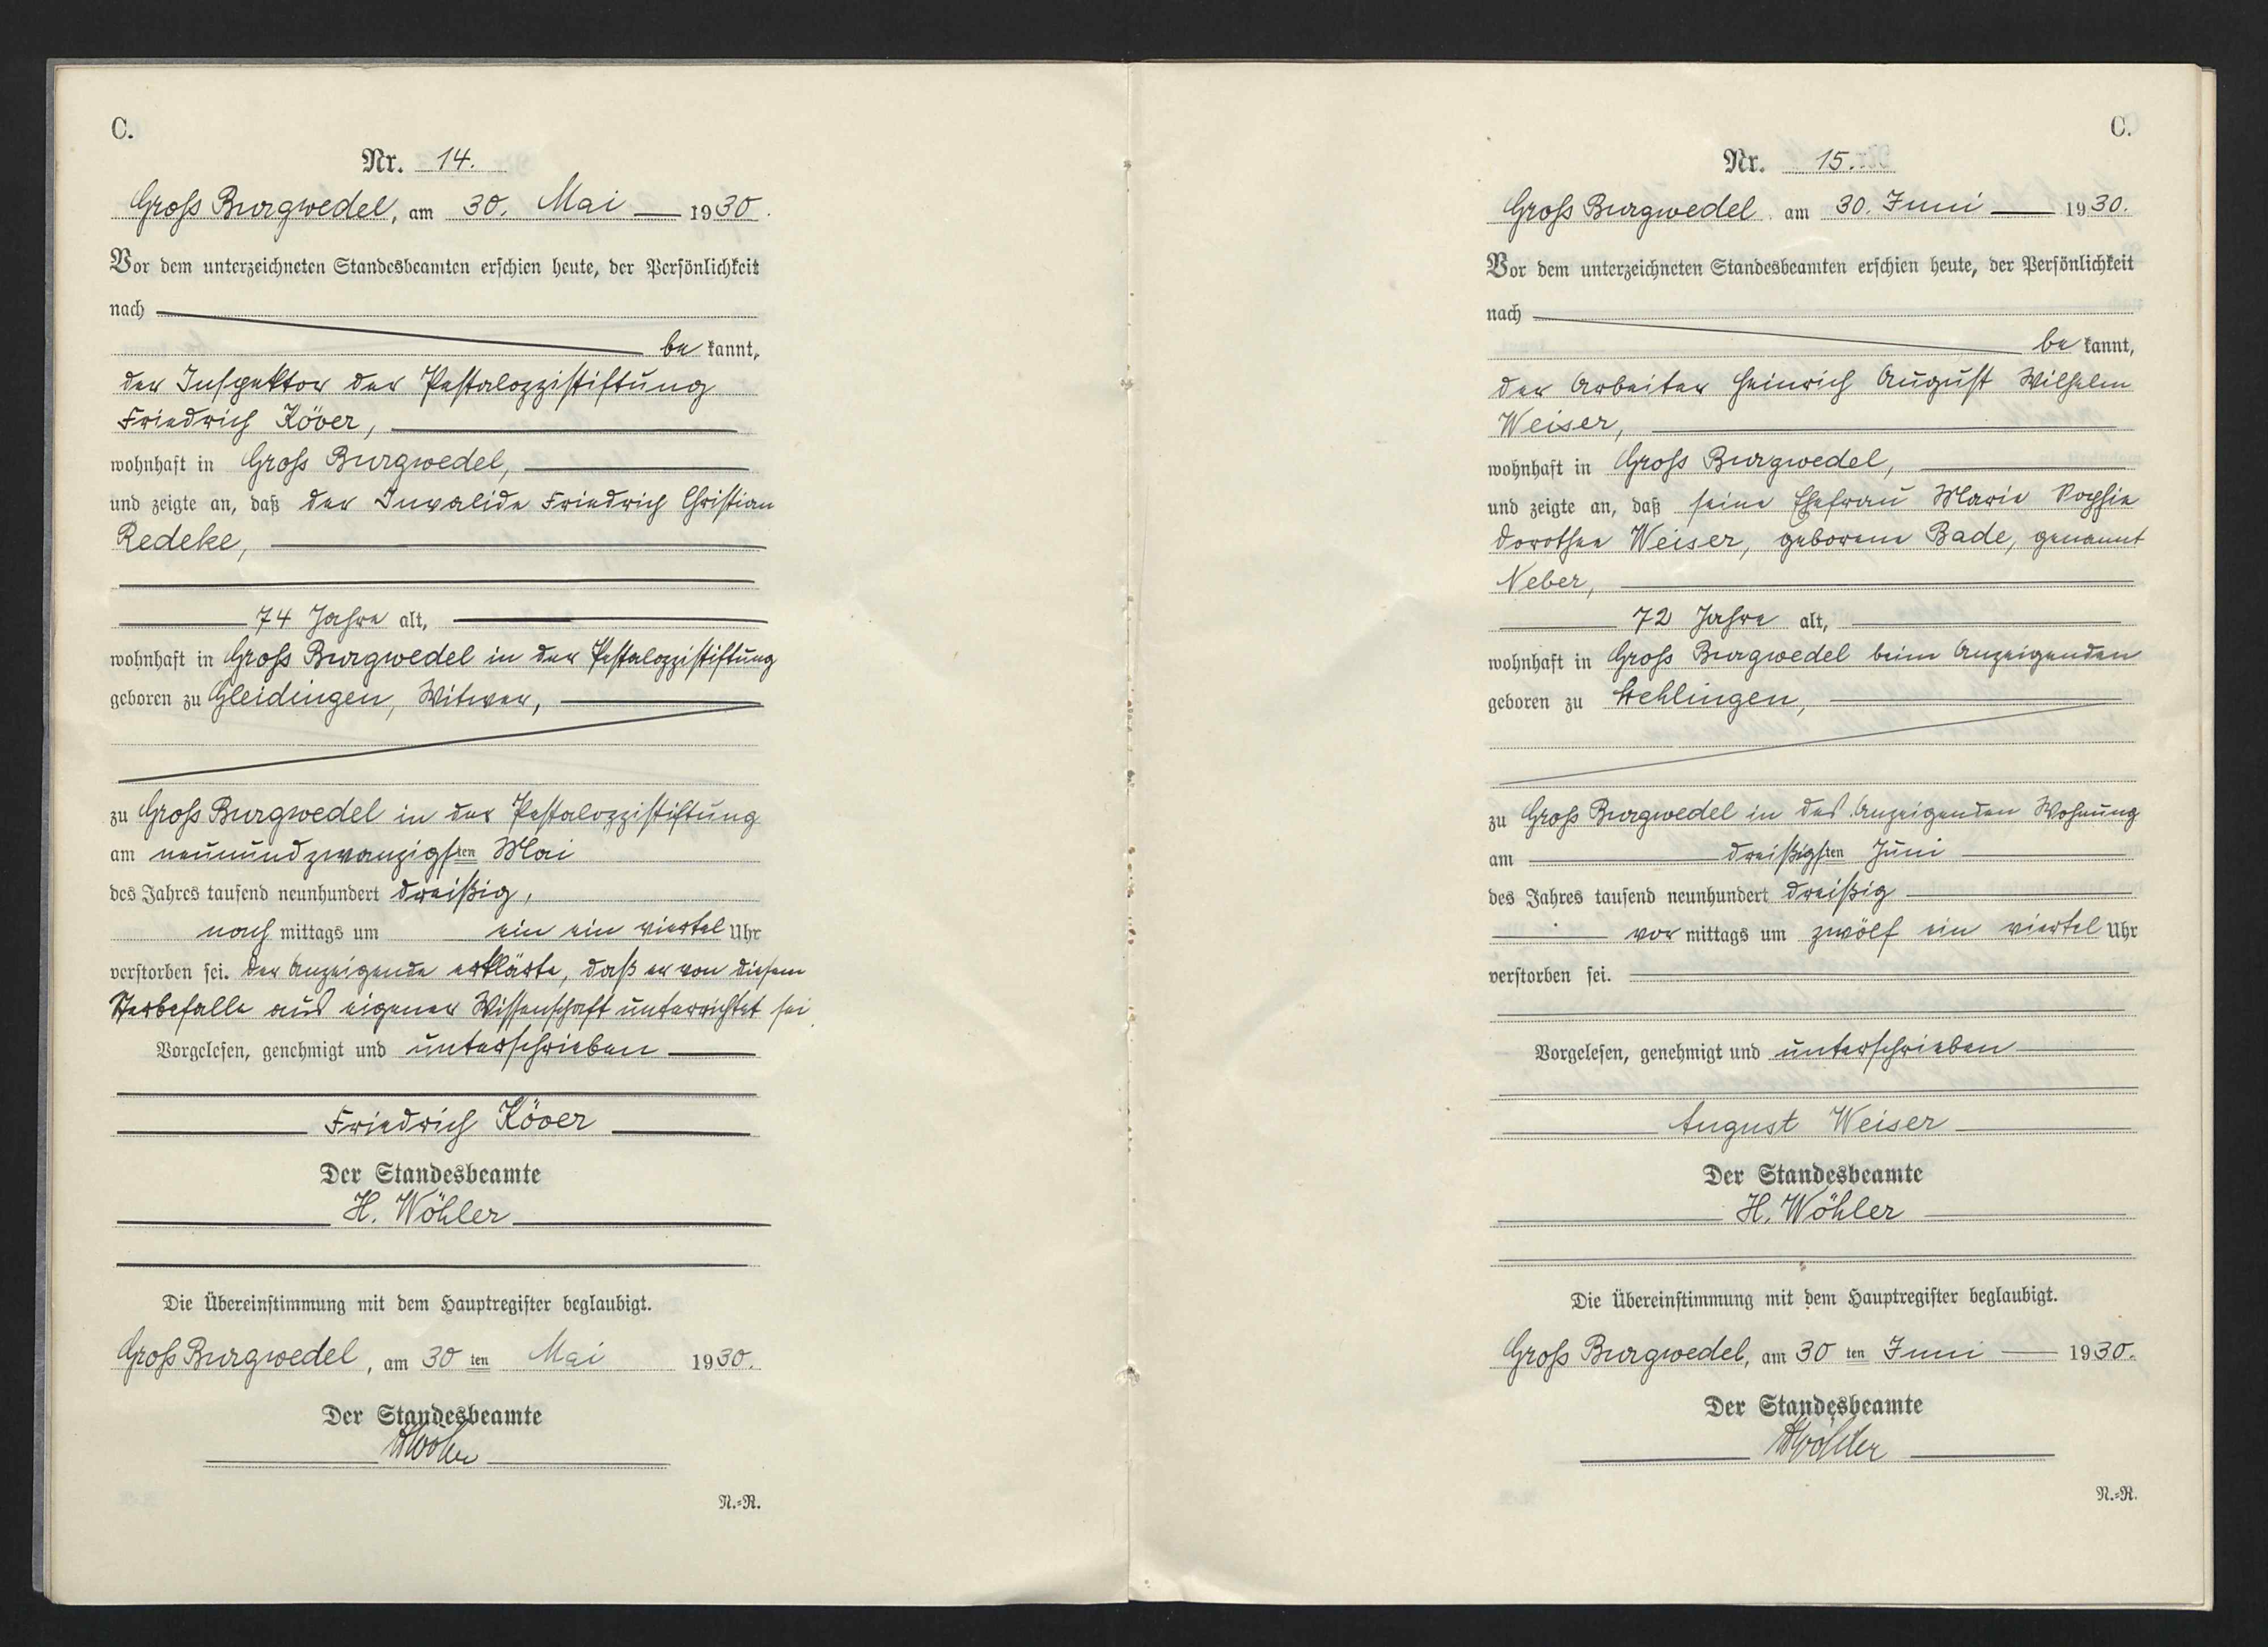 C.
Nr. 14.
Groß Burgwedel, am 30. Mai 1930.
Vor dem unterzeichneten Standesbeamten erschien heute, der Persönlichkeit
nach
be kannt,
der Inspektor der Pestalozzistiftung
Friedrich Köver,
wohnhaft in Groß Burgwedel,
und zeigte an, daß der Invalide Friedrich Christian
Redeke,
74 Jahre alt,
wohnhaft in Groß Burgwedel in der Pestalozzistiftung
geboren zu Gleidingen, Witwer,
zu Groß Burgwedel in der Pestalozzistiftung
am neunundzwanzigsten Mai
des Jahres tausend neunhundert dreißig,
nach mittags um ein ein viertel Uhr
verstorben sei. Der Anzeigende erklärte, daß er von diesem
Sterbefalle aus eigener Wissenschaft unterrichtet sei.
Vorgelesen, genehmigt und unterschrieben
Friedrich Köver
Der Standesbeamte
H. Wöhler
Die Übereinstimmung mit dem Hauptregister beglaubigt.
Groß Burgwedel, am 30 ten Mai 1930.
Der Standesbeamte
HWöhler
N.=R.
C.
Nr. 15.
Groß Burgwedel am 30. Juni 1930.
Vor dem unterzeichneten Standesbeamten erschien heute, der Persönlichkeit
nach
be kannt,
der Arbeiter Heinrich August Wilhelm
Weiser,
wohnhaft in Groß Burgwedel,
und zeigte an, daß seine Ehefrau Marie Sophie
Dorothee Weiser, geborene Bade, genannt
Neber,
72 Jahre alt,
wohnhaft in Groß Burgwedel beim Anzeigenden
geboren zu Wehlingen,
zu Groß Burgwedel in des Anzeigenden Wohnung
am dreißigsten Juni
des Jahres tausend neunhundert dreißig
vor mittags um zwölf ein viertel Uhr
verstorben sei.
Vorgelesen, genehmigt und unterschrieben
August Weiser
Der Standesbeamte
H. Wöhler
Die Übereinstimmung mit dem Hauptregister beglaubigt.
Groß Burgwedel, am 30 ten Juni 1930.
Der Standesbeamte
HWöhler
N.=R.